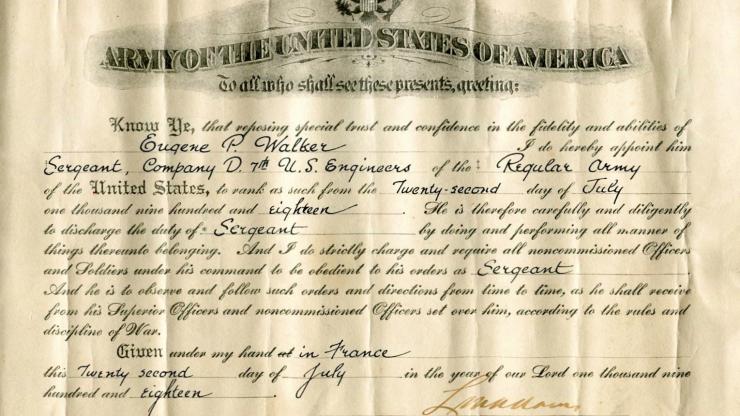 ARMY OF THE UNITED STATES OF AMERICA
To all who shall see these presents, greeting:
Know Ye, that reposing special trust and confidence in the fidelity and abilities of
Eugene P. Walker I do hereby appoint him
Sergeant, Company D. 7th U.S. Engineers of the Regular Army
of the United States, to rank as such from the Twenty-second day of July
one thousand nine hundred and eighteen. He is therefore carefully and diligently
to discharge the duty of Sergeant by doing and performing all manner of
things thereunto belonging. And I do strictly charge and require all noncommissioned Officers
and Soldiers under his command to be obedient to his orders as Sergeant.
And he is to observe and follow such orders and directions from time to time, as he shall receive
from his Superior Officers and noncommissioned Officers set over him, according to the rules and
discipline of War.
Given under my hand at in France
this Twenty second day of July in the year of our Lord one thousand nine
hundred and eighteen.